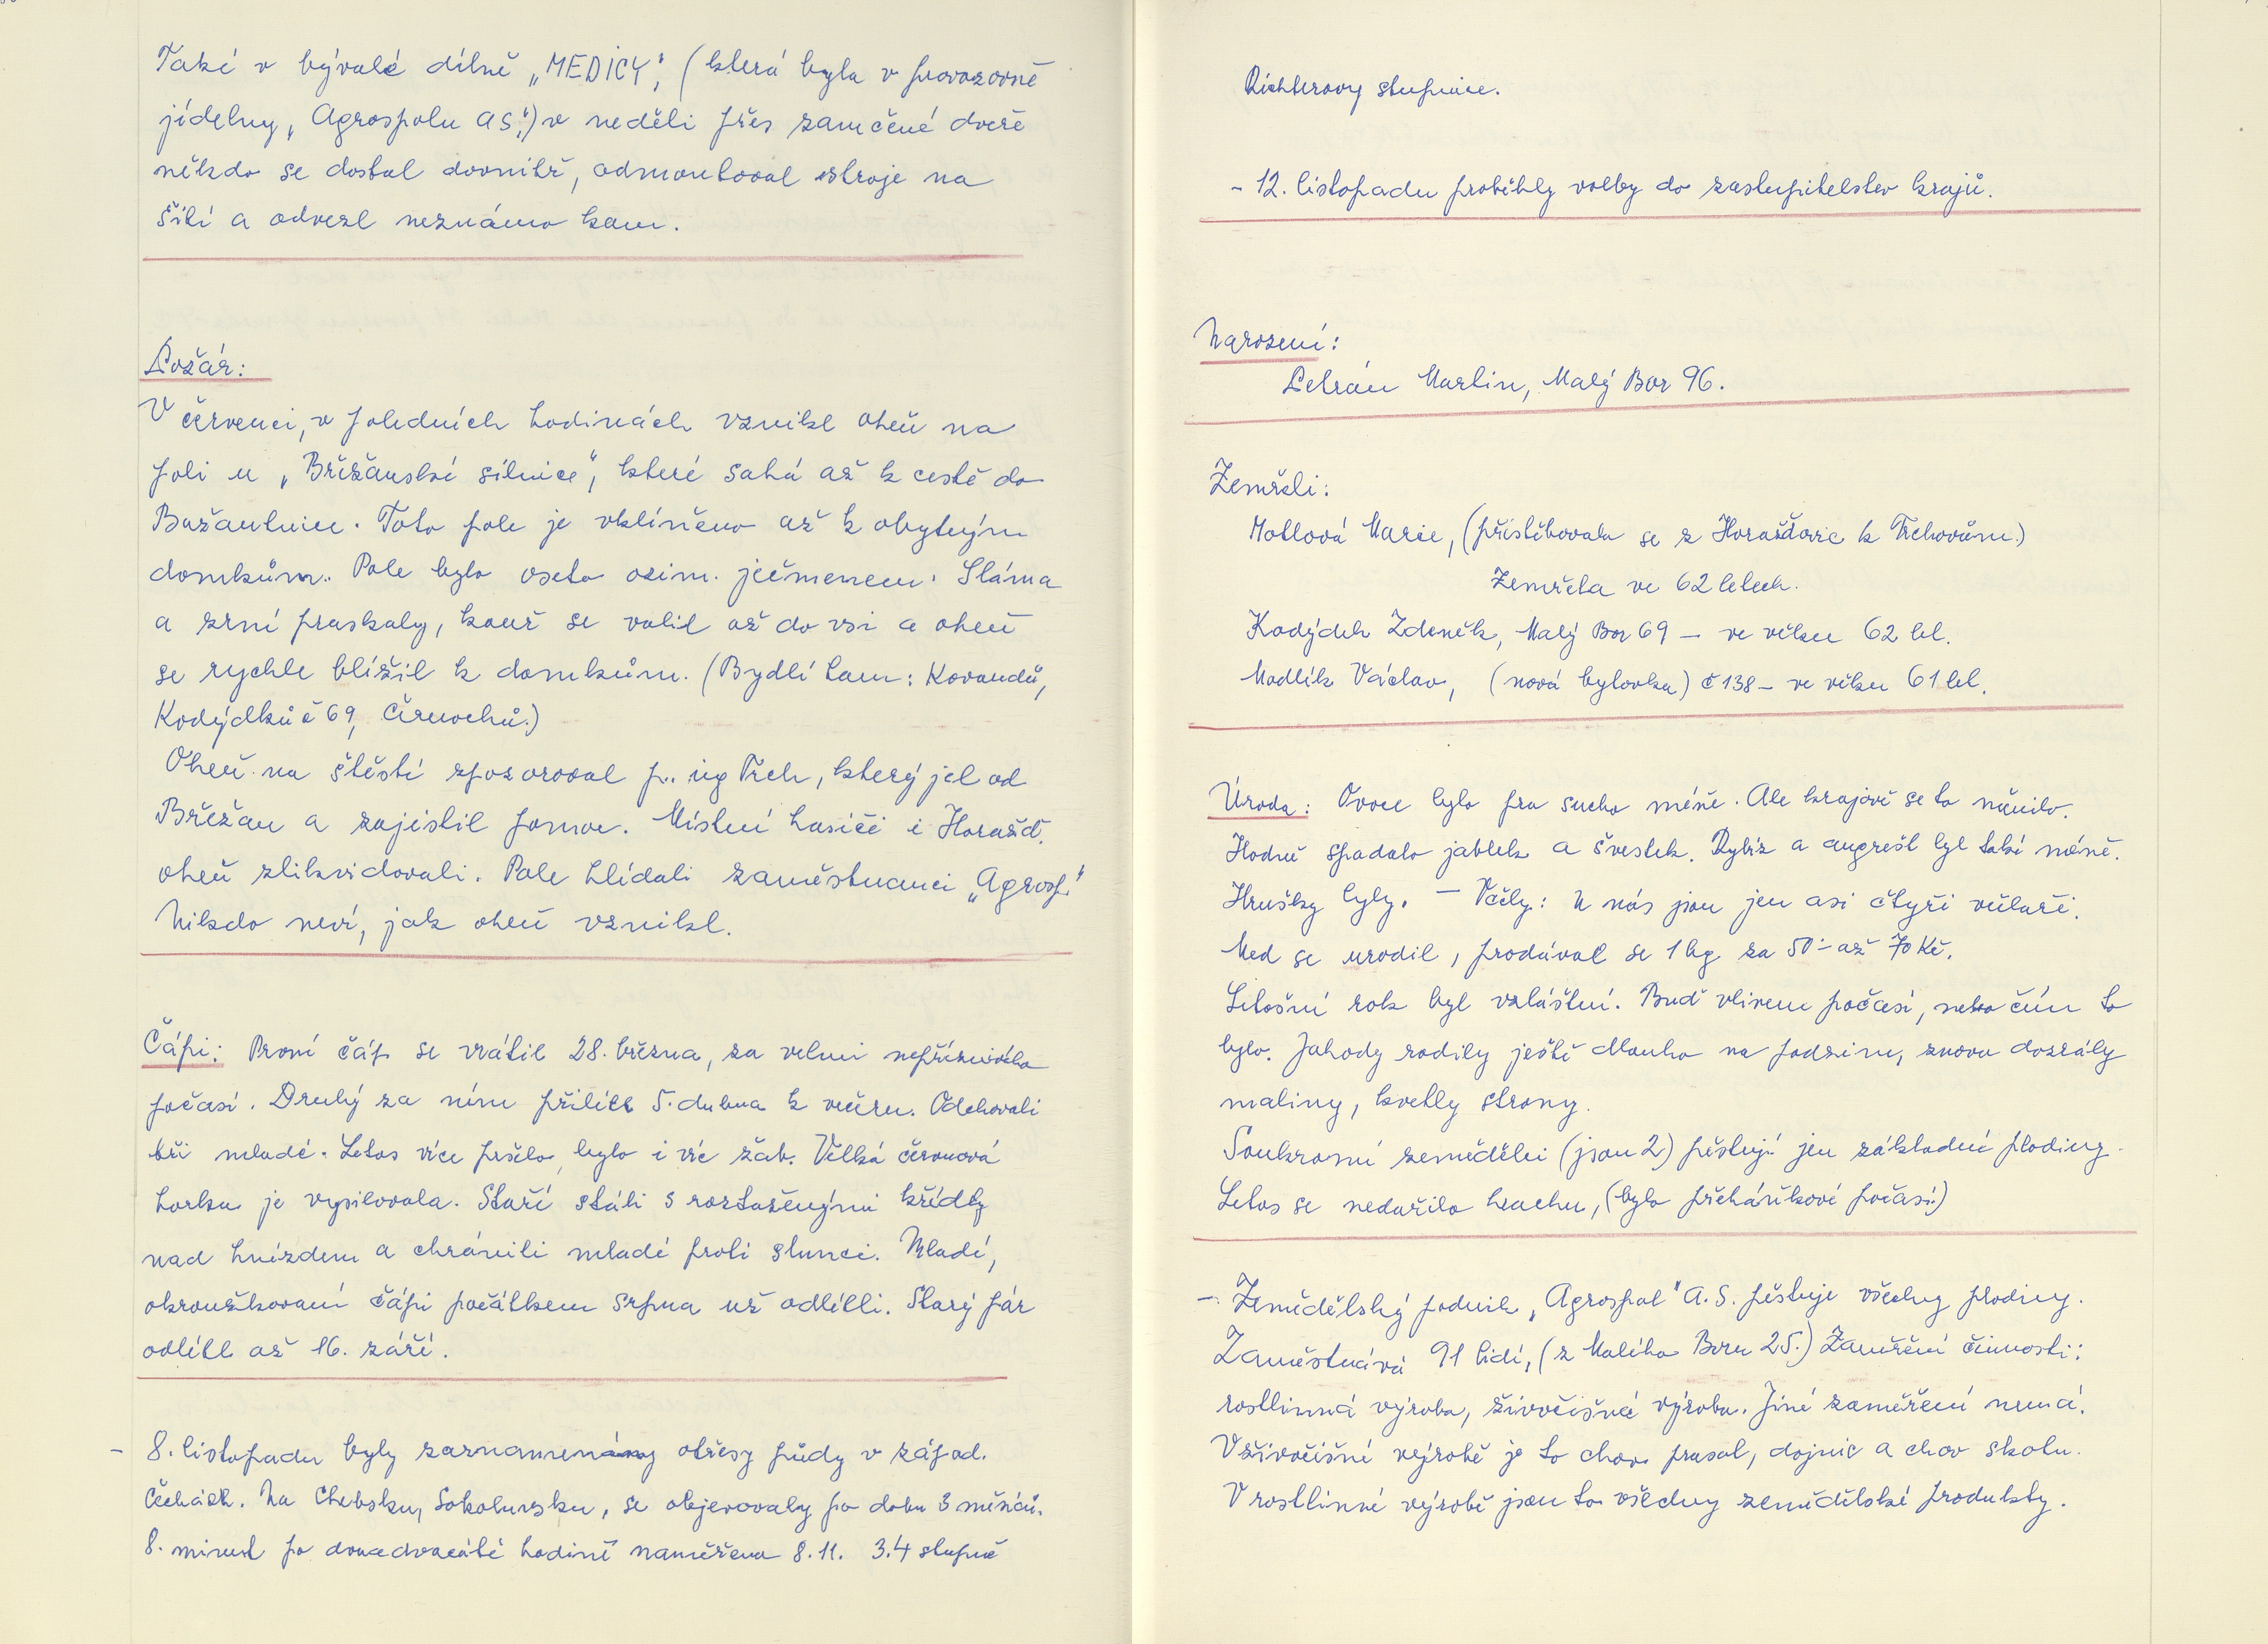 Také v bývalé dílně „MEDICY", (která byla v provozovně
jídelny „Agrospolu as") v neděli přes zamčené dveře
někdo se dostal dovnitř, odmontoval stroje na
šití a odvezl neznámo kam.
Požár:
V červenci, v poledních hodinách vznikl oheň na
poli u „Břežanské silnice", které sahá až k cestě do
Bažantnice. Toto pole je vklíněno až k obytným
domkům. Pole bylo oseto ozim. ječmenem. Sláma
a zrní praskaly, kouř se valil až do vsi a oheň
se rychle blížil k domkům. (Bydlí tam: Kovandů,
Kodýdků č 69, Černochů.)
Oheň na štěstí zpozoroval p. ing Trch, který jel od
Břežan a zajistil pomoc. Místní hasiči i Horažď.
oheň zlikvidovali. Pole hlídali zaměstnanci „Agrosp."
Nikdo neví, jak oheň vznikl.
Čápi: První čáp se vrátil 28. března, za velmi nepříznivého
počasí. Druhý za ním přilétl 5. dubna k večeru. Odchovali
tři mladé. Letos více pršelo, bylo i víc žab. Velká červnová
horka je vysilovala. Staří stáli s roztaženými křídly
nad hnízdem a chránili mladé proti slunci. Mladí,
okroužkovaní čápi počátkem srpna už odlétli. Starý pár
odlétl až 16. září.
- 8. listopadu byly zaznamenány otřesy půdy v západ.
Čechách. Na Chebsku, Sokolovsku, se objevovaly po dobu 3 měsíců.
8. minut po dvacáté hodině naměřeno 8.11. 3.4 stupně
Richterovy stupnice.
- 12. listopadu proběhly volby do zastupitelstev krajů.
Narození:
Petrán Martin, Malý Bor 96.
Zemřeli:
Motlová Marie, (přistěhovala se z Horažďovic k Trchovům.)
Zemřela ve 62 letech.
Kodýdek Zdeněk, Malý Bor 69 - ve věku 62 let.
Modlík Václav, (nová bytovka) č 138 - ve věku 61 let.
Úroda: Ovoce bylo pro sucho méně. Ale krajově se to měnilo.
Hodně spadalo jablek a švestek. Rybíz a angrešt byl také méně.
Hrušky byly. - Včely: U nás jsou jen asi čtyři včelaři.
Med se urodil, prodával se 1 kg za 50.- až 70 Kč.
Letošní rok byl vzláštní. Buď vlivem počasí, nebo čím to
bylo. Jahody rodily ještě dlouho na podzim, znovu dozrály
maliny, kvetly stromy.
Soukromí zemědělci (jsou 2) pěstují jen základní plodiny.
Letos se nedařilo hrachu, (bylo přeháňkové počasí.)
- Zemědělský podnik „Agrospol" A.S. pěstuje všechny plodiny.
Zaměstnává 91 lidí, (z Malého Boru 25.) Zaměření činnosti:
rostlinná výroba, živočišná výroba. Jiné zaměření nemá.
V živočišné výrobě je to chov prasat, dojnic a chov skotu.
V rostlinné výrobě jsou to všechny zemědělské produkty.